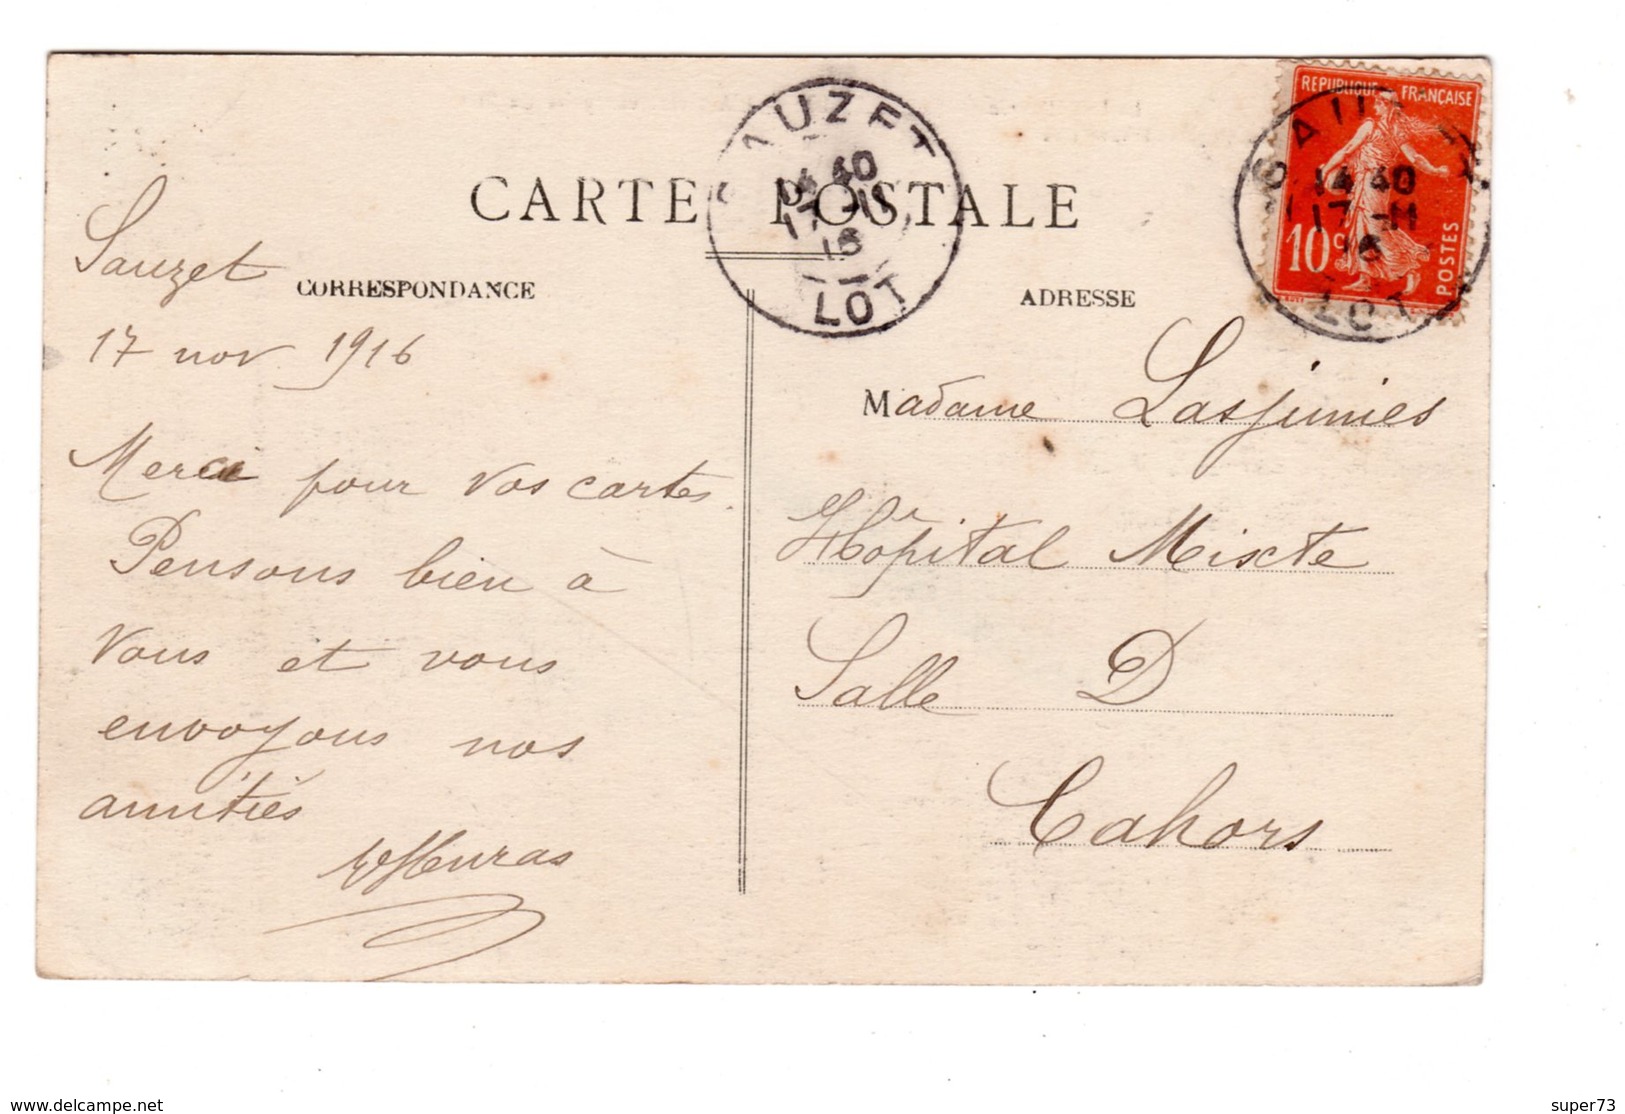 CARTE POSTALE
SAUZET
14 40
17 -11
16
LOT
REPUBLIQUE FRANÇAISE
10c
POSTES
14 40
17 -11
16
LOT
CORRESPONDANCE
Sauzet
17 nov 1916
Merci pour vos cartes.
Pensons bien à
vous et vous
envoyons nos
amitiés
ADRESSE
Madame Lasjunies
Hôpital Mixte
Salle D
Cahors
www.delcampe.net
super73